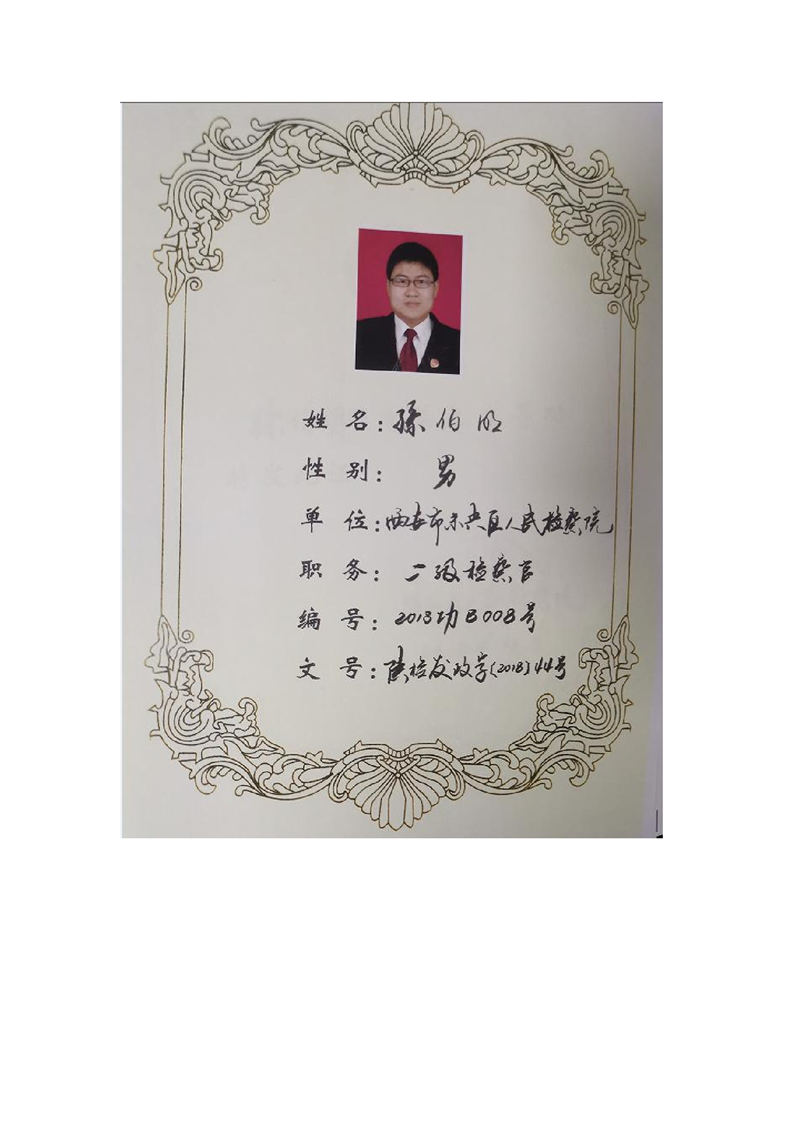 姓名：孫伯明
性别：男
单位：西安市未央区人民检察院
职务：二级检察官
编号：2013功B008号
文号：陕检发政字〔2013〕44号